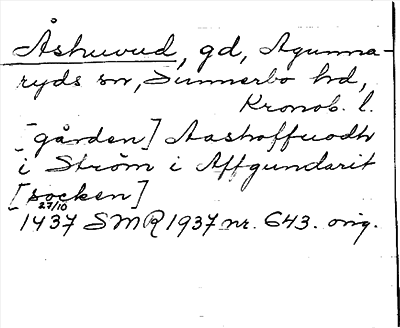 Åshuvud, gd, Agunna-
ryds sn, Sunnerbo hd,
Kronob. l.
[gården] Aashoffuodh
i Ström i Affgundarit
[socken]
27/10
1437 SMR 1937 nr. 643. orig.